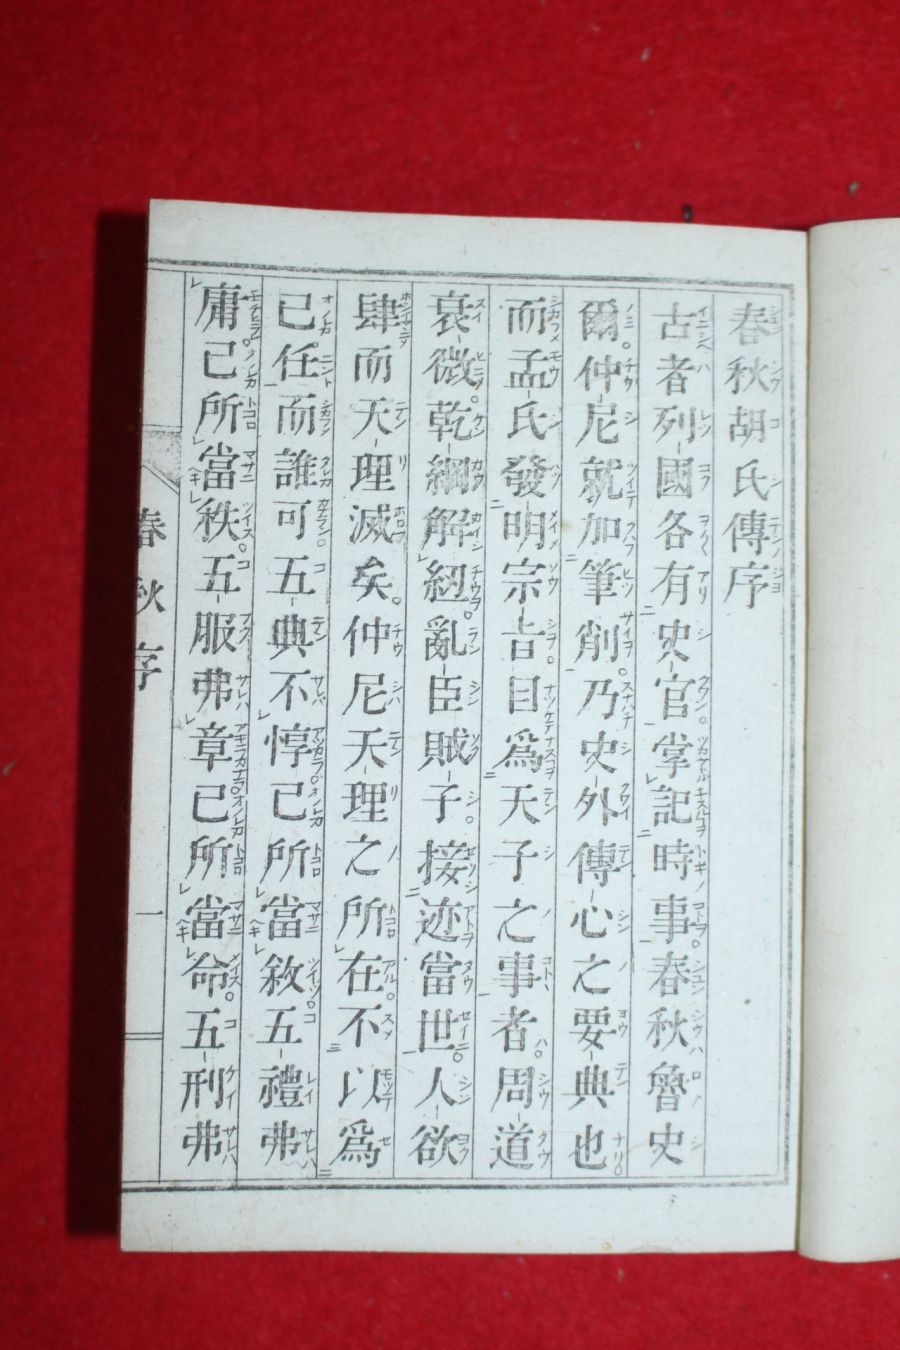 春秋胡氏傳序
古者列國各有史官掌記時事春秋魯史
爾仲尼就加筆削乃史外傳心之要典也
而孟氏發明宗旨目爲天子之事者周道
衰微乾綱解紐亂臣賊子接迹當世人欲
肆而天理滅矣仲尼天理之所在不以爲
己任而誰可五典不惇己所當敘五禮弗
庸己所當秩五服弗章己所當命五刑弗
春秋序
一